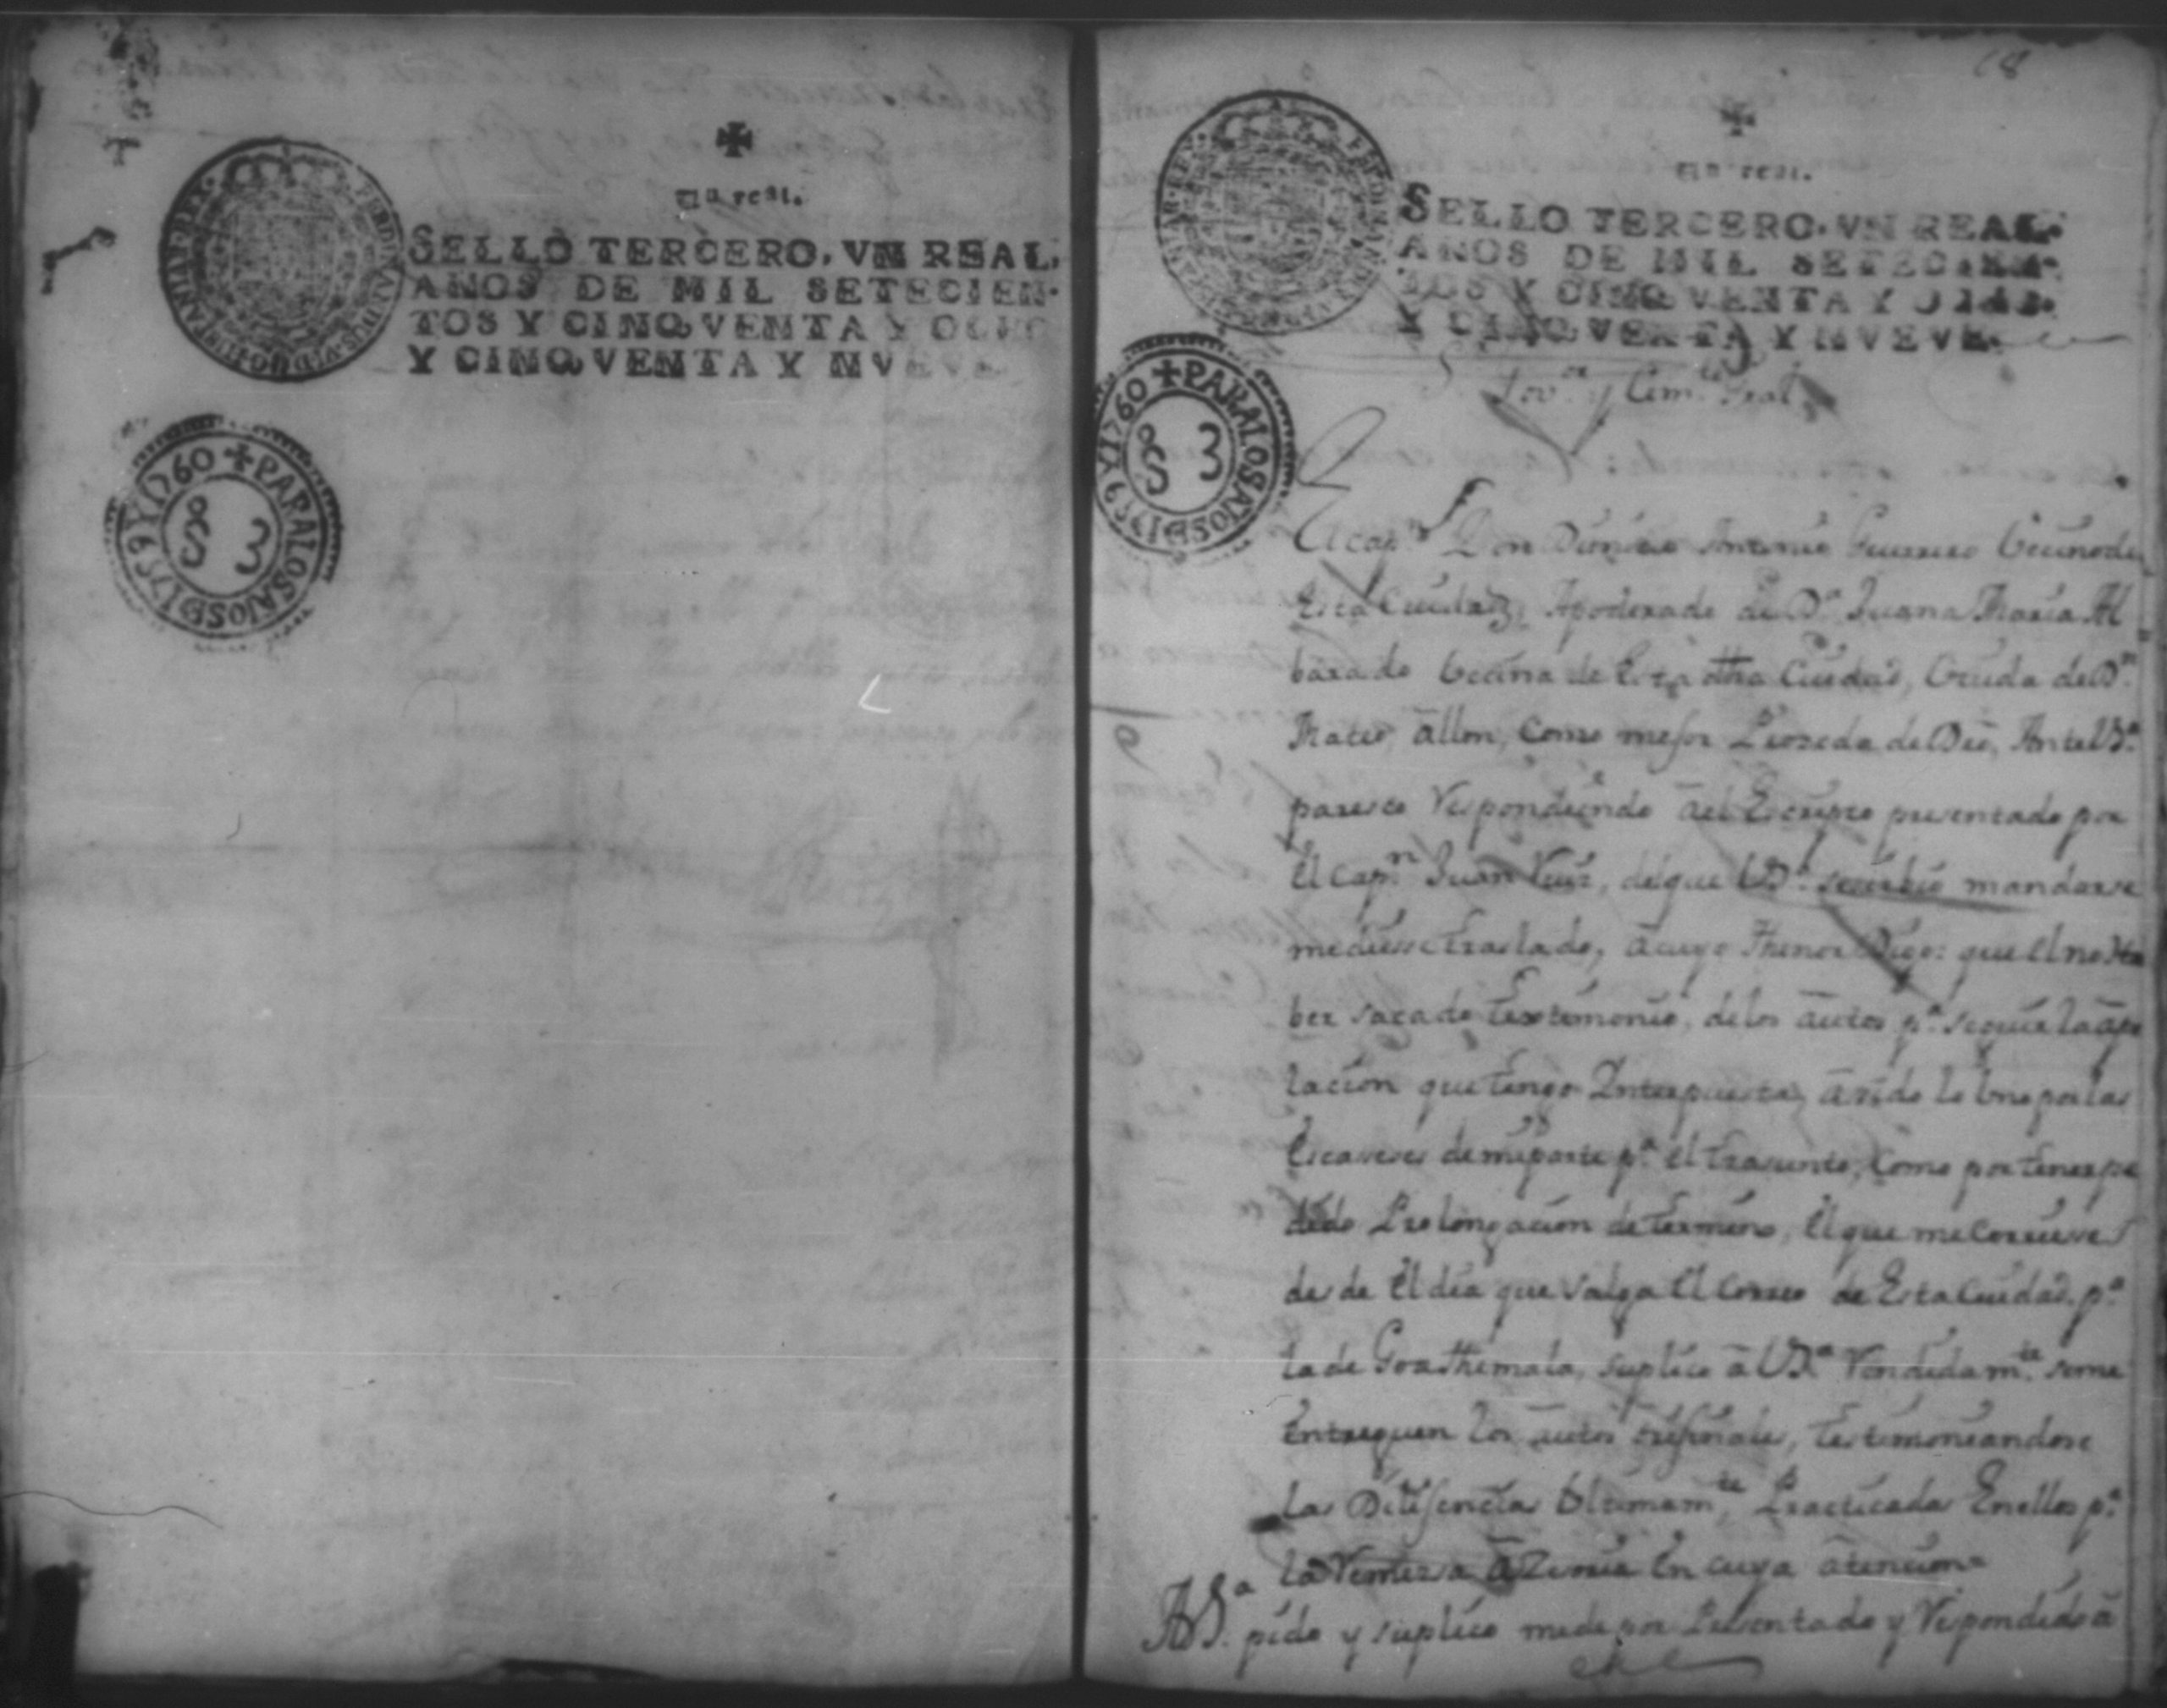 ✠
Un real.
SELLO TERCERO, VN REAL,
AÑOS DE MIL SETECIEN-
TOS Y CINQVENTA Y OCHO
Y CINQVENTA Y NVEVE
✠PARALOSAIOSDI759YI760
S 3
68
✠
Un real.
SELLO TERCERO, VN REAL,
AÑOS DE MIL SETECIEN-
TOS Y CINQVENTA Y OCHO
Y CINQVENTA Y NVEVE.
✠PARALOSAIOSDI759YI760
S 3
Gov.or y Com.te Gral
El cap.n Don Dionisio Antonio Guerrero Vecino de
Esta Ciudad, Apoderado de D.a Juana Maria Al
barado Vecina de Esta dha Ciudad, Viuda de D.n
Matheo allon, Como mejor Proseda de Dro, Ante VS.a
paresco Respondiendo a el Escripto presentado por
El Cap.n Juan Ruis, de que VS.a se sirbio mandar se
me diesse traslado, a cuyo thenor Digo: que el no Ha
ber sacado testimonio, de los autos p.a seguir la ape
lacion que tengo Interpuesta, a sido lo Uno por las
Escaseses de mi parte p.a el trasunto, Como por tener pe
dido Prolongacion de termino, El que me Corre
desde El dia que salga El Correo de Esta Ciudad p.a
la de Goathemala, suplico a VS.a Rendidam.te se me
Entreguen los autos orijinales, testimoneandose
las Dilijencias Ultimam.te Practicadas En ellos p.a
la Remissa En cuya atencion
A VS.a pido y suplico me de por Presentado y Respondido a